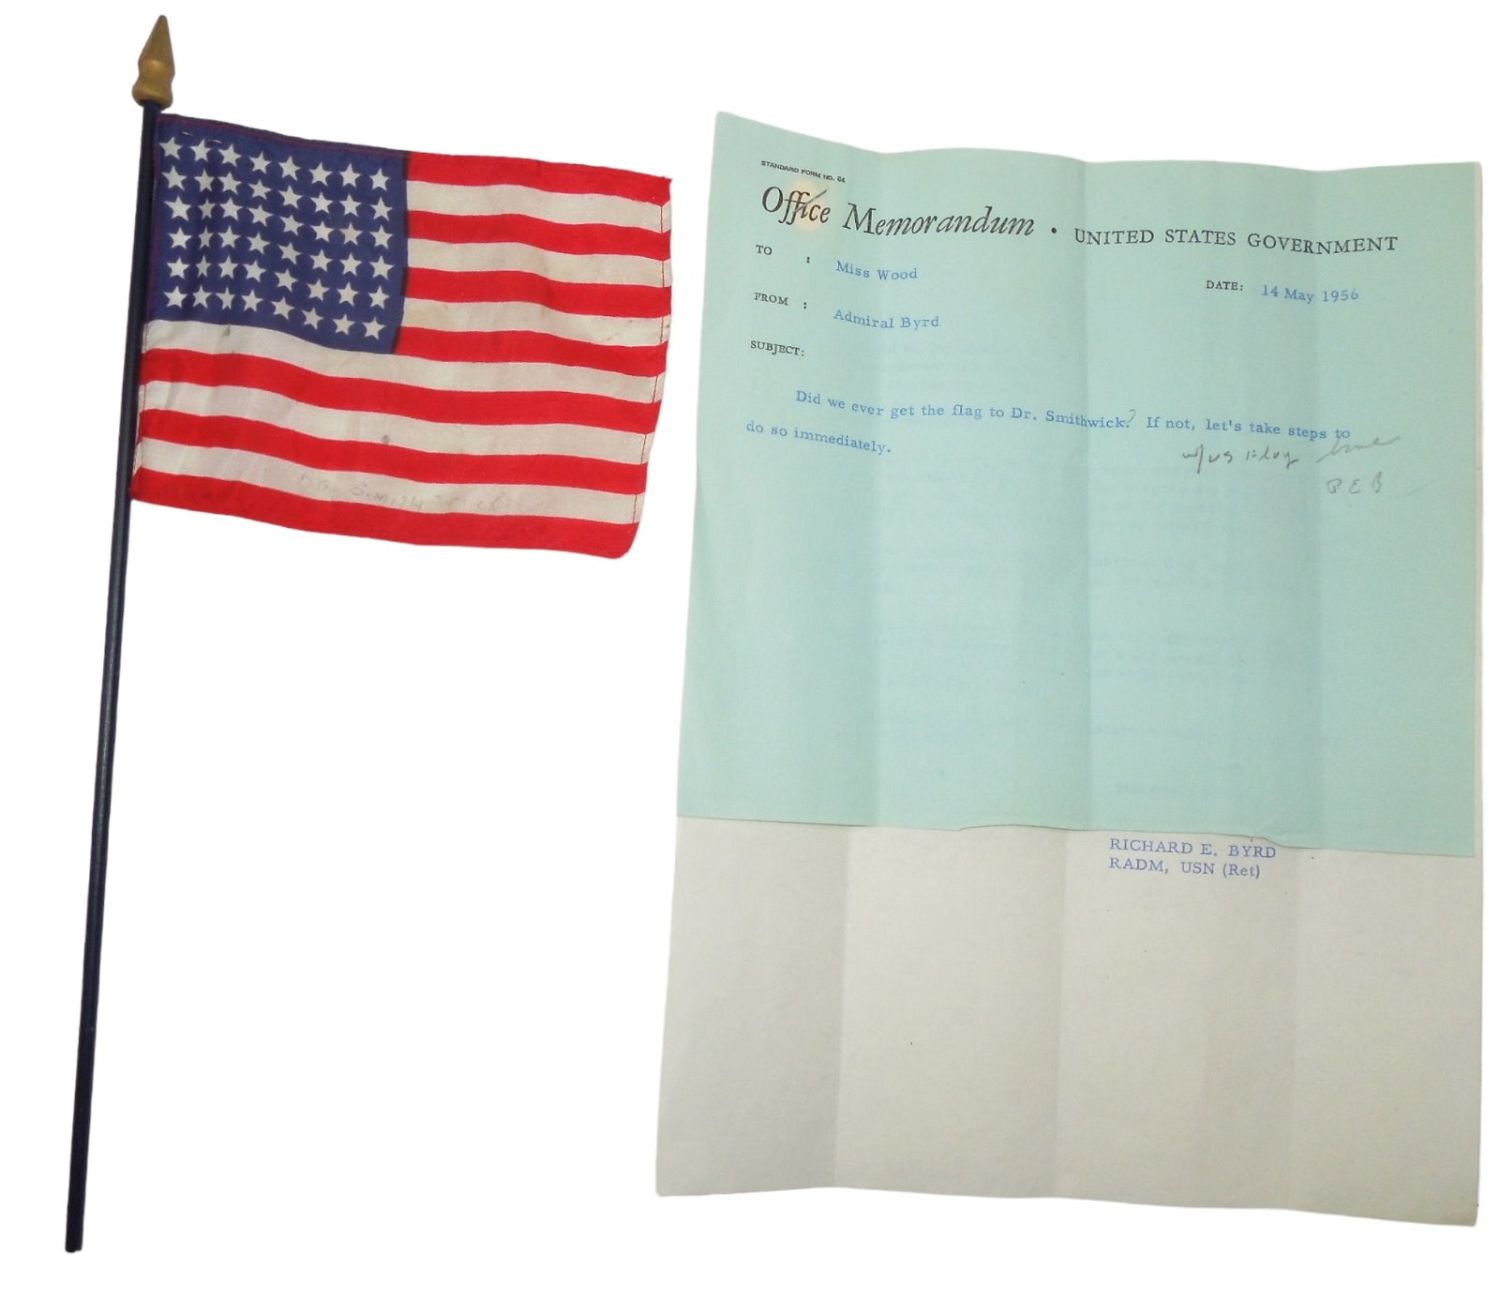 DR. Smith
STANDARD FORM NO. 64
Office Memorandum • UNITED STATES GOVERNMENT
TO : Miss Wood
DATE: 14 May 1956
FROM : Admiral Byrd
SUBJECT:
Did we ever get the flag to Dr. Smithwick? If not, let's take steps to
do so immediately.
REB
RICHARD E. BYRD
RADM, USN (Ret)